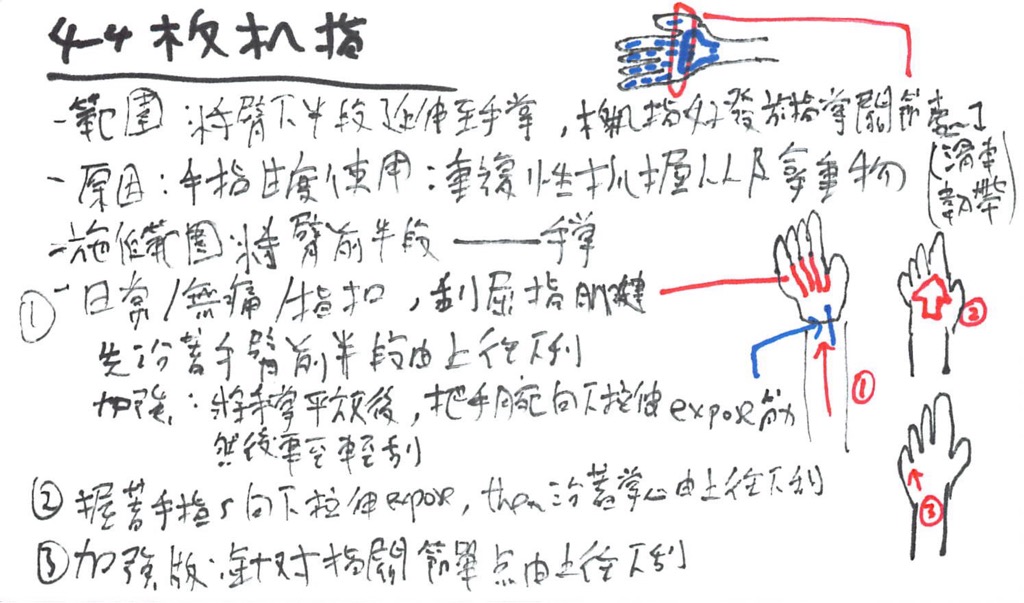 4-4 板机指
-範圍:將臂下半段延伸至手掌,板机指好發於指掌關節處
(滑車韌帶)
-原因:手指过度使用:重複性抓握以及拿重物
-施作範圍:將臂前半段——手掌
① -日常/無痛/指扣,刮屈指肌腱
先沿著手臂前半段由上往下刮
加強:將手掌平放後,把手腕向下拉伸expose筋
然後輕刮
② 握著手指,向下拉伸expose,then沿著掌心由上往下刮
③ 加強版:針对指關節單点由上往下刮
①
②
③